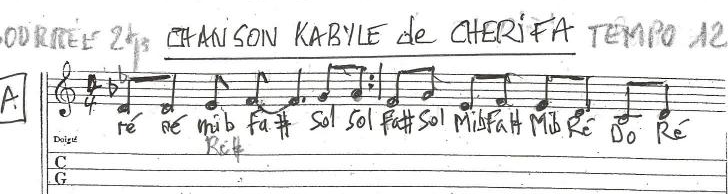 BOURRÉE 2tps CHANSON KABYLE de CHERIFA TEMPO 12
A.
4
4
ré ré mib Fa # Sol Sol Fa# Sol Mib Fa# Mib Ré Do Ré
Ré#
Doigté
C
G